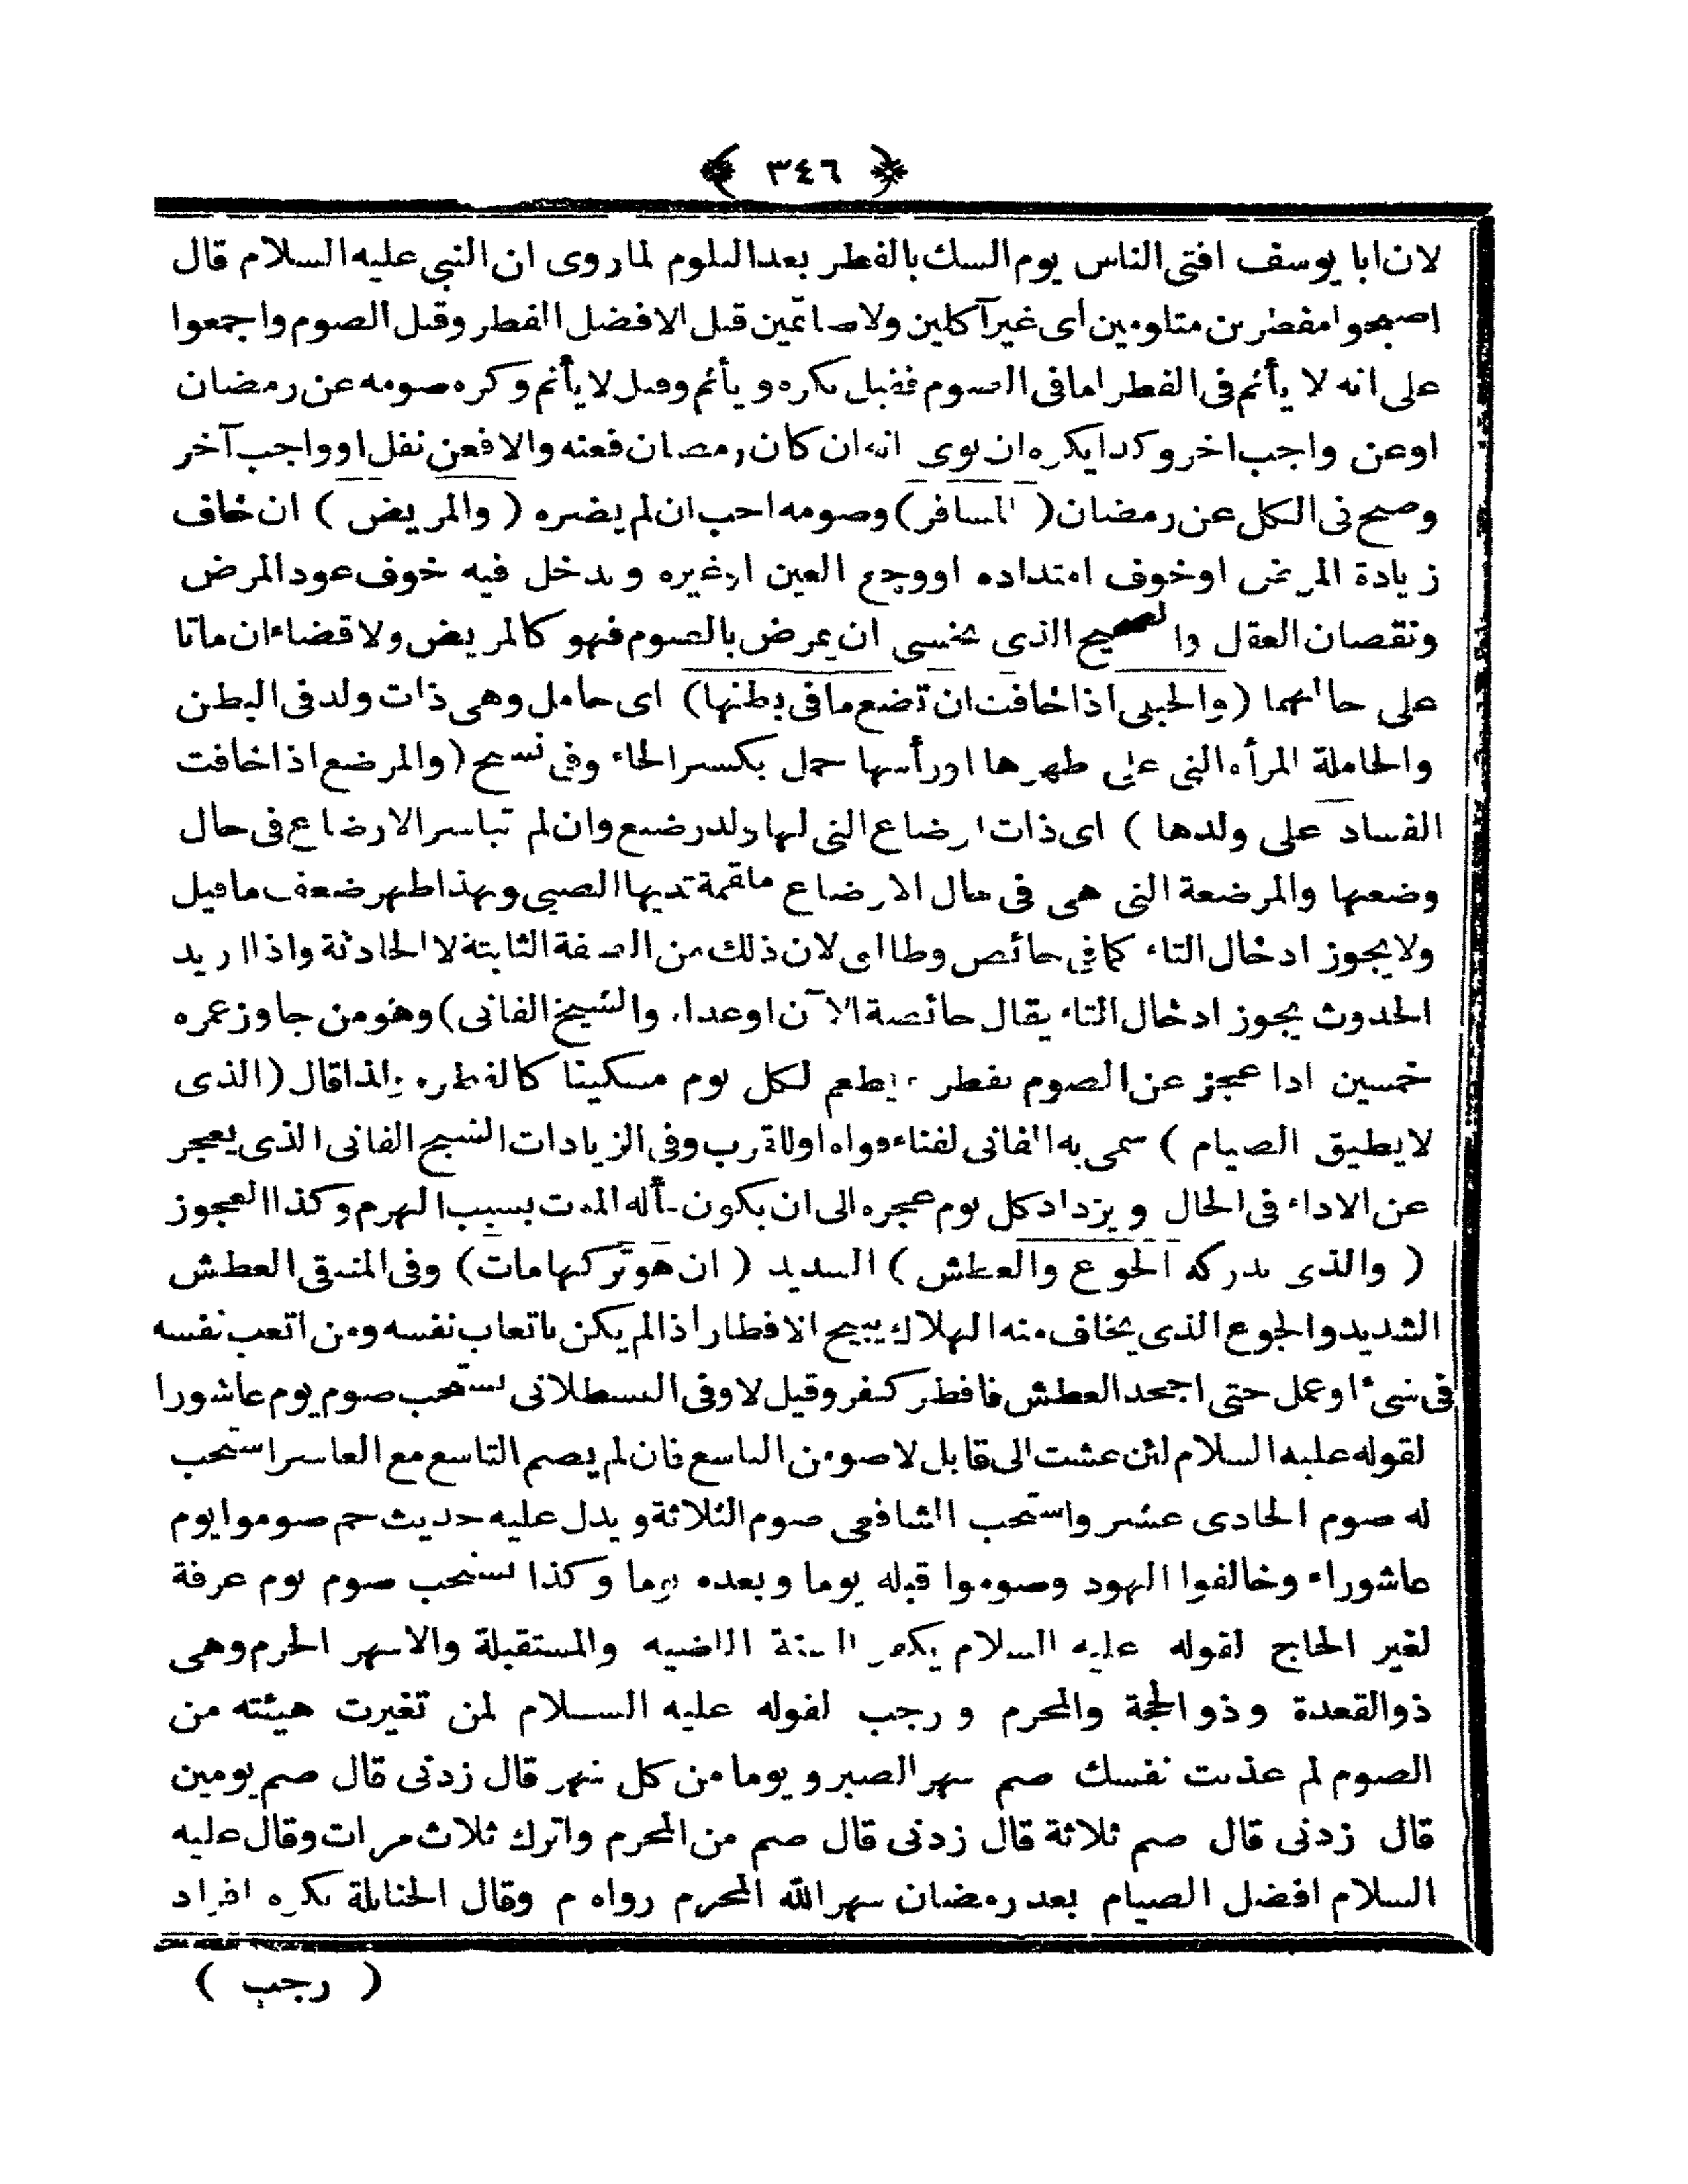 ﴿ ٣٤٦ ﴾
لان ابا يوسف افتى الناس يوم الشك بالفطر بعد التلوم لما روى ان النبي عليه السلام قال
اصبحوا مفطرين متلومين اى غير آكلين ولا صائمين قيل الافضل الفطر وقيل الصوم واجمعوا
على انه لا يأثم فى الفطر اما فى الصوم فقيل يكره و يأثم وقيل لا يأثم وكره صومه عن رمضان
او عن واجب اخر وكذا يكره ان نوى انه ان كان رمضان فعنه والا فعن نفل او واجب آخر
وصح فى الكل عن رمضان ( المسافر ) وصومه احب ان لم يضره ( والمريض ) ان خاف
زيادة المرض او خوف امتداده او وجع العين او غيره ويدخل فيه خوف عود المرض
ونقصان العقل والصحيح الذى يخشى ان يمرض بالصوم فهو كالمريض ولا قضاء ان ماتا
على حالهما ( والحبلى اذا خافت ان تضع ما فى بطنها ) اى حامل وهى ذات ولد فى البطن
والحاملة المرأة التى على ظهرها او رأسها حمل بكسر الحاء وفى نسخ ( والمرضع اذا خافت
الفساد على ولدها ) اى ذات ارضاع التى لها ولد رضيع وان لم تباشر الارضاع فى حال
وضعها والمرضعة التى هى فى حال الارضاع ملقمة ثديها الصبى وبهذا ظهر ضعف ما قيل
ولا يجوز ادخال التاء كما فى حائض وطالق لان ذلك من الصفة الثابتة لا الحادثة واذا اريد
الحدوث يجوز ادخال التاء يقال حائضة الآن او غدا، والشيخ الفانى ) وهو من جاوز عمره
خمسين اذا عجز عن الصوم يفطر ويطعم لكل يوم مسكينا كالفطره ولذا قال ( الذى
لا يطيق الصيام ) سمى به الفانى لفناء قواه او للقرب وفى الزيادات الشيخ الفانى الذى يعجز
عن الاداء فى الحال و يزداد كل يوم عجزه الى ان يكون مأله الموت بسبب الهرم وكذا العجوز
( والذى يدركه الجوع والعطش ) الشديد ( ان هو تركها مات ) وفى المنتقى العطش
الشديد والجوع الذى يخاف منه الهلاك يبيح الافطار اذا لم يكن باتعاب نفسه ومن اتعب نفسه
فى شىء او عمل حتى اجهد العطش فافطر كفر وقيل لا وفى القسطلانى يستحب صوم يوم عاشورا
لقوله عليه السلام لئن عشت الى قابل لا صومن التاسع فان لم يصم التاسع مع العاشر استحب
له صوم الحادى عشر واستحب الشافعى صوم الثلاثة و يدل عليه حديث حم صوموا يوم
عاشوراء وخالفوا اليهود وصوموا قبله يوما و بعده يوما وكذا يستحب صوم يوم عرفة
لغير الحاج لقوله عليه السلام يكفر السنة الماضيه والمستقبلة والاشهر الحرم وهى
ذوالقعدة وذوالحجة والمحرم و رجب لقوله عليه السلام لمن تغيرت هيئته من
الصوم لم عذبت نفسك صم شهر الصبر و يوما من كل شهر قال زدنى قال صم يومين
قال زدنى قال صم ثلاثة قال زدنى قال صم من المحرم واترك ثلاث مرات وقال عليه
السلام افضل الصيام بعد رمضان شهر الله المحرم رواه م وقال الحنابلة يكره افراد
( رجب )